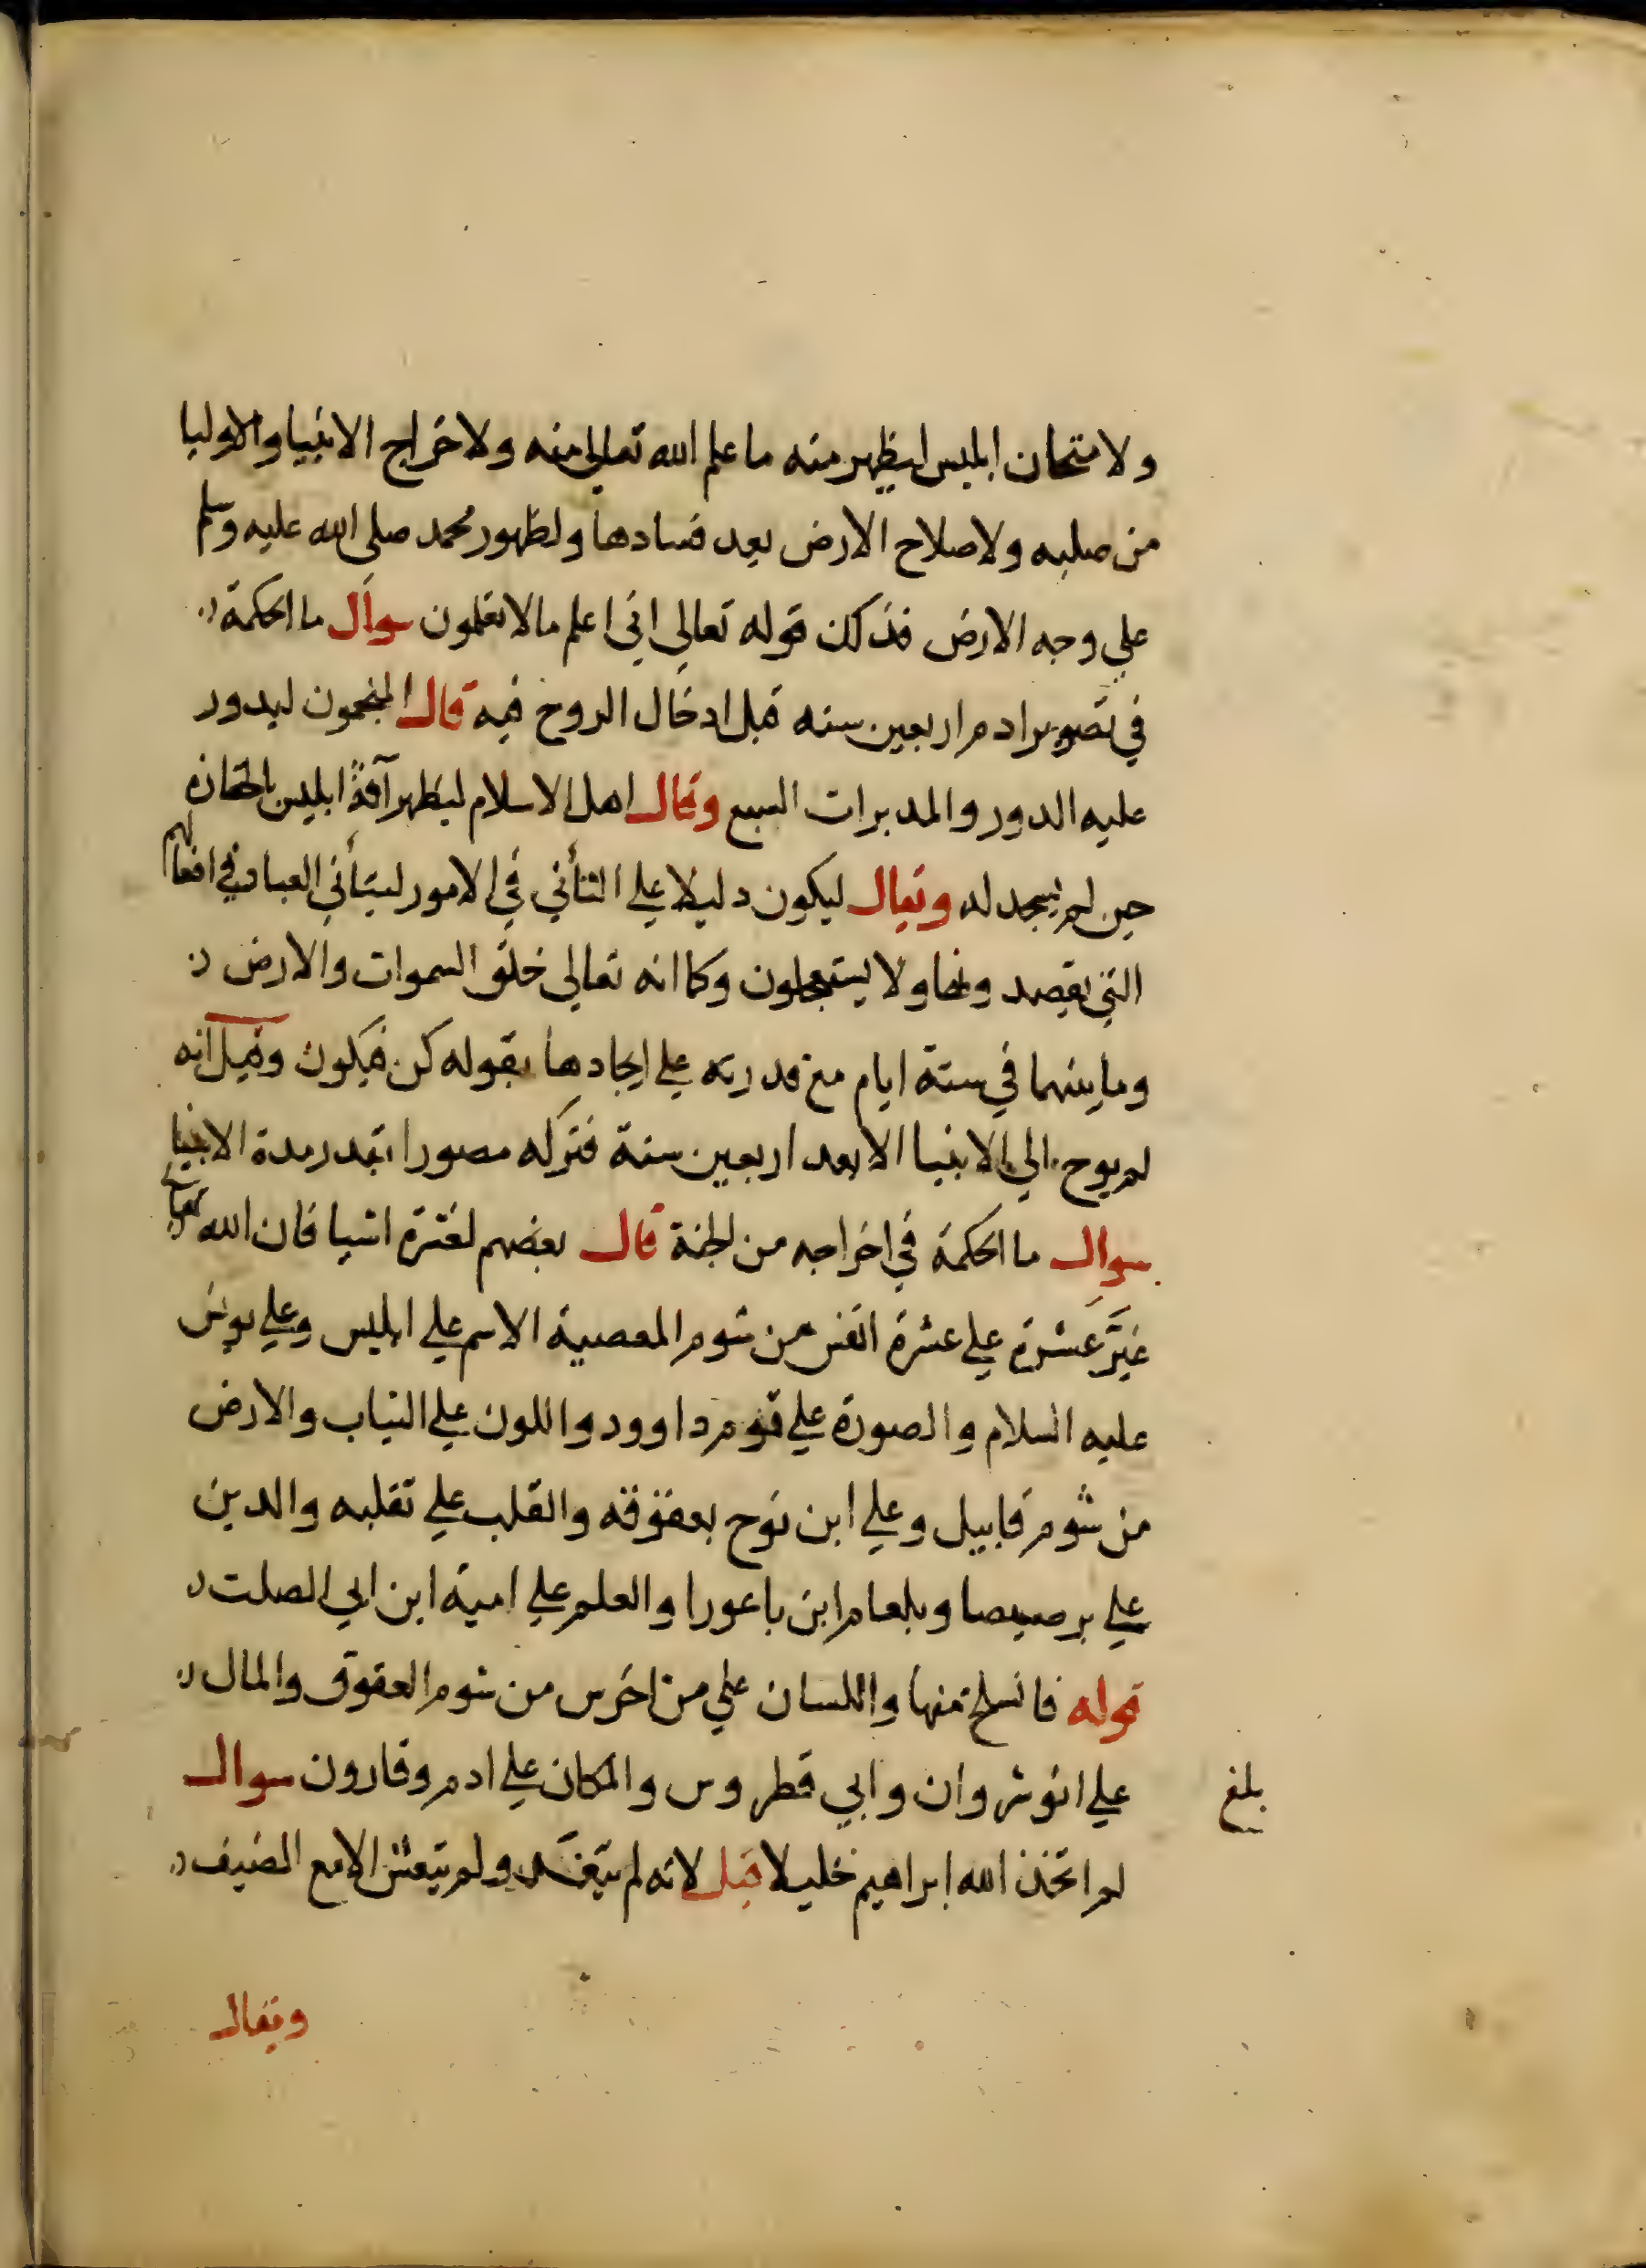 ولامتحان ابليس ليظهر منه ما علم الله تعالى منه ولاخراج الانبيا والاوليا
من صلبه ولاصلاح الارض بعد فسادها ولظهور محمد صلى الله عليه وسلم
علي وجه الارض فذلك قوله تعالي اني اعلم مالا تعلمون سوال ما الحكمة
في تصوير ادم اربعين سنه قبل ادخال الروح فيه قال المنجمون ليدور
عليه الدور والمدبرات السبع وقال اهل الاسلام ليظهر آفة ابليس بامتحانه
حين لم يسجد له ويقال ليكون دليلا علي التأني في الامور ليتأني العباد في افعالهم
التي تقصد ولا يستعجلون وكما انه تعالي خلق السموات والارض
وما بينهما في ستة ايام مع قدرته علي ايجادها بقوله كن فيكون وقيل انه
لم يوح الي الانبيا الا بعد اربعين سنة فتركه مصورا بقدر مدة الانبيا
سوال ما الحكمة في اخراجه من الجنة قال بعضهم لعشرة اشيا فان الله تعالى
غيَّر عَشرة علي عشرة انفس من شوم المعصية الاسم علي ابليس وعلي يونس
عليه السلام والصورة علي قوم داوود واللون علي الثياب والارض
من شوم قابيل وعلي ابن نوح بعقوقه والقلب علي تقلبه والدين
علي برصيصا وبلعام ابن باعورا والعلم علي امية ابن ابي الصلت
قوله فانسلخ منها واللسان علي من اخرس من شوم العقوق والمال
علي انوشروان وابي قطروس والمكان علي ادم وقارون سوال
بلغ
لم اتخذ الله ابراهيم خليلا قيل لانه لم يتغد ولم يتعش الا مع الضيف
ويقال